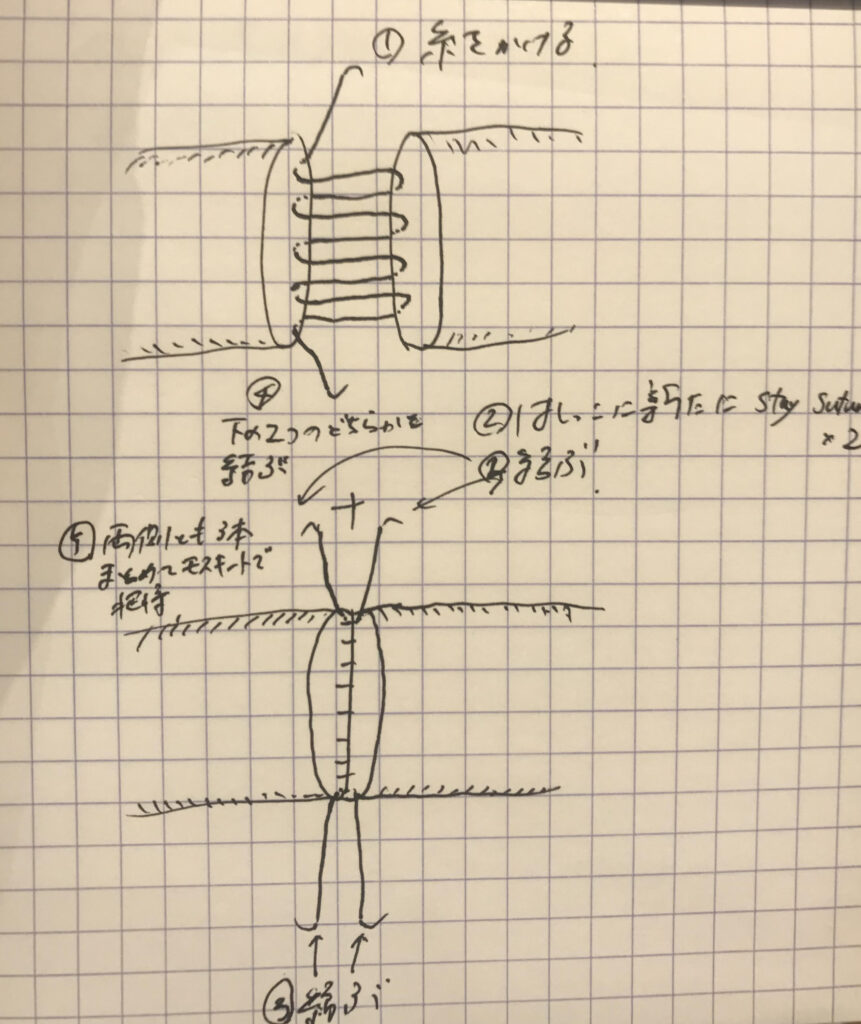 ① 糸をかける
② はしっこに新たに stay sutu
×2
④
下の2つのどちらかを
結ぶ
② 結ぶ
⑤ 両側とも3本
まとめてモスキートで
把持
③ 結ぶ